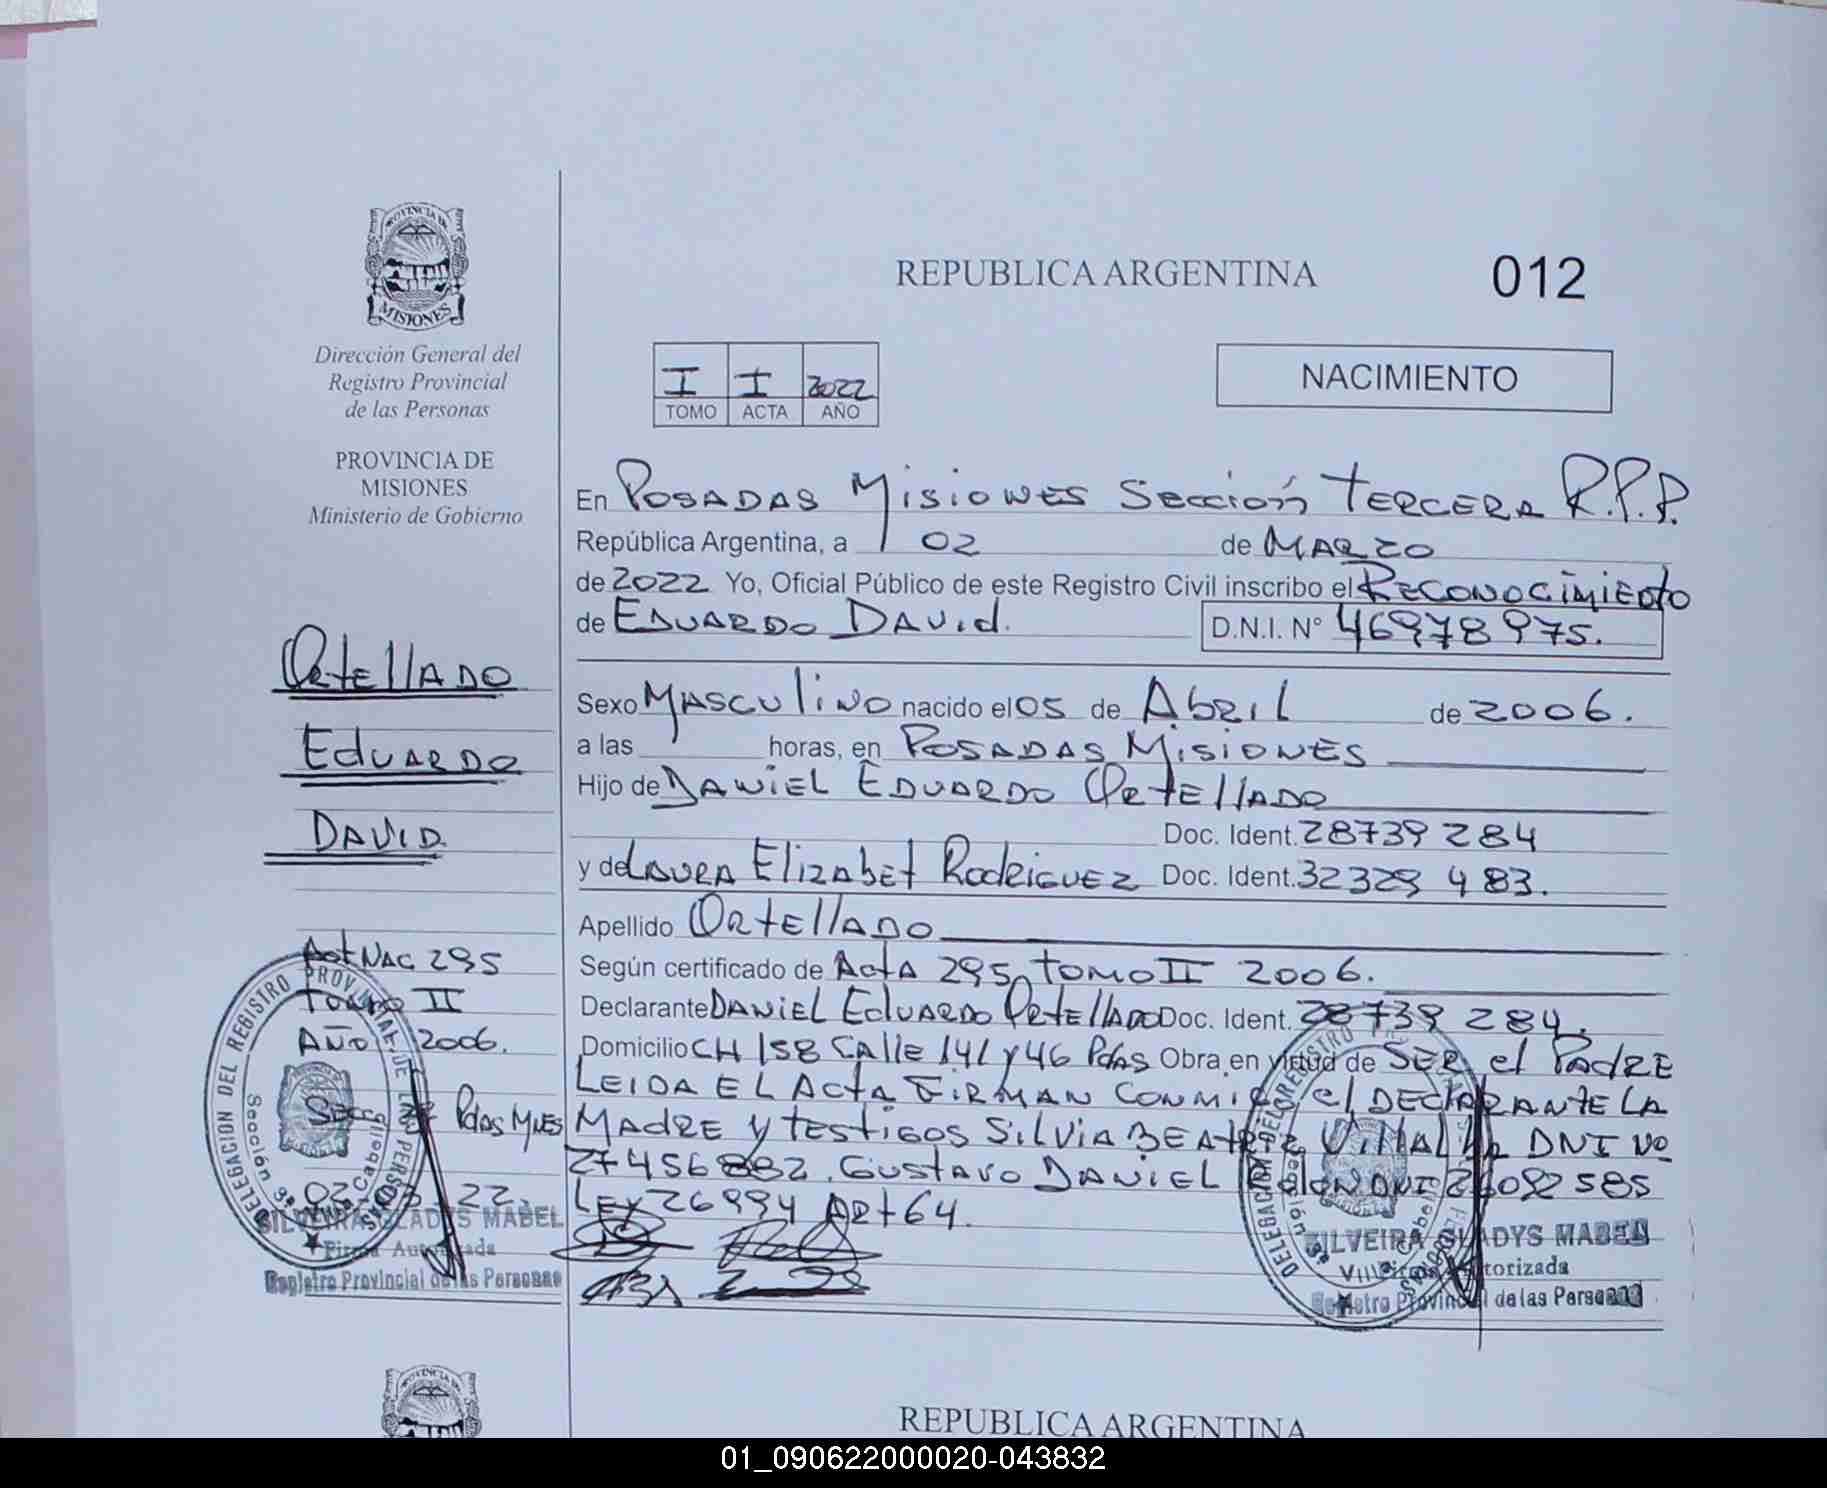 PROVINCIA DE
MISIONES
Dirección General del
Registro Provincial
de las Personas
PROVINCIA DE
MISIONES
Ministerio de Gobierno
OrtEllADO
EduARDO
DAVID
Act NAC 295
Tomo II
AÑO 2006.
Sec 3ª Pdas MNES
02 03 22.
DELEGACION DEL REGISTRO PROVINCIAL DE LAS PERSONAS
Sección 3ª
SILVEIRA GLADYS MABEL
Firma Autorizada
Registro Provincial de las Personas
REPUBLICA ARGENTINA
012
I I 2022
TOMO ACTA AÑO
NACIMIENTO
En POSADAS MISIONES Sección TERCERA R.P.P.
República Argentina, a 02 de MARZO
de 2022 Yo, Oficial Público de este Registro Civil inscribo el RECONOCIMIENTO
de EDUARDO DAVID. D.N.I. N° 46978975.
Sexo MASCULINO nacido el 05 de Abril de 2006.
a las horas, en POSADAS MISIONES
Hijo de DANIEL EDUARDO OrtEllADO
Doc. Ident. 28739 284
y de LAURA ElizAbEt RodriGUEZ Doc. Ident. 32329 483.
Apellido OrtEllADO
Según certificado de Acta 295 tomo II 2006.
Declarante DANIEL EduARDO OrtEllADO Doc. Ident. 28739 284.
Domicilio CH 158 CAllE 141 y 46 Pdas Obra en virtud de SER el PAdRE
LEIDA EL ActA FiRMAN CONMIGO el DECLARANTE LA
MADRE y tEStiGOS SilviA BEAtRiz VillAlba DNI Nº
27456882. GUStAVO DANIEL DNI 26092585
LEY 26994 ARt 64.
DELEGACION DEL REGISTRO
SILVEIRA GLADYS MABEL
Autorizada
Registro Provincial de las Personas
REPUBLICA ARGENTINA
01_090622000020-043832